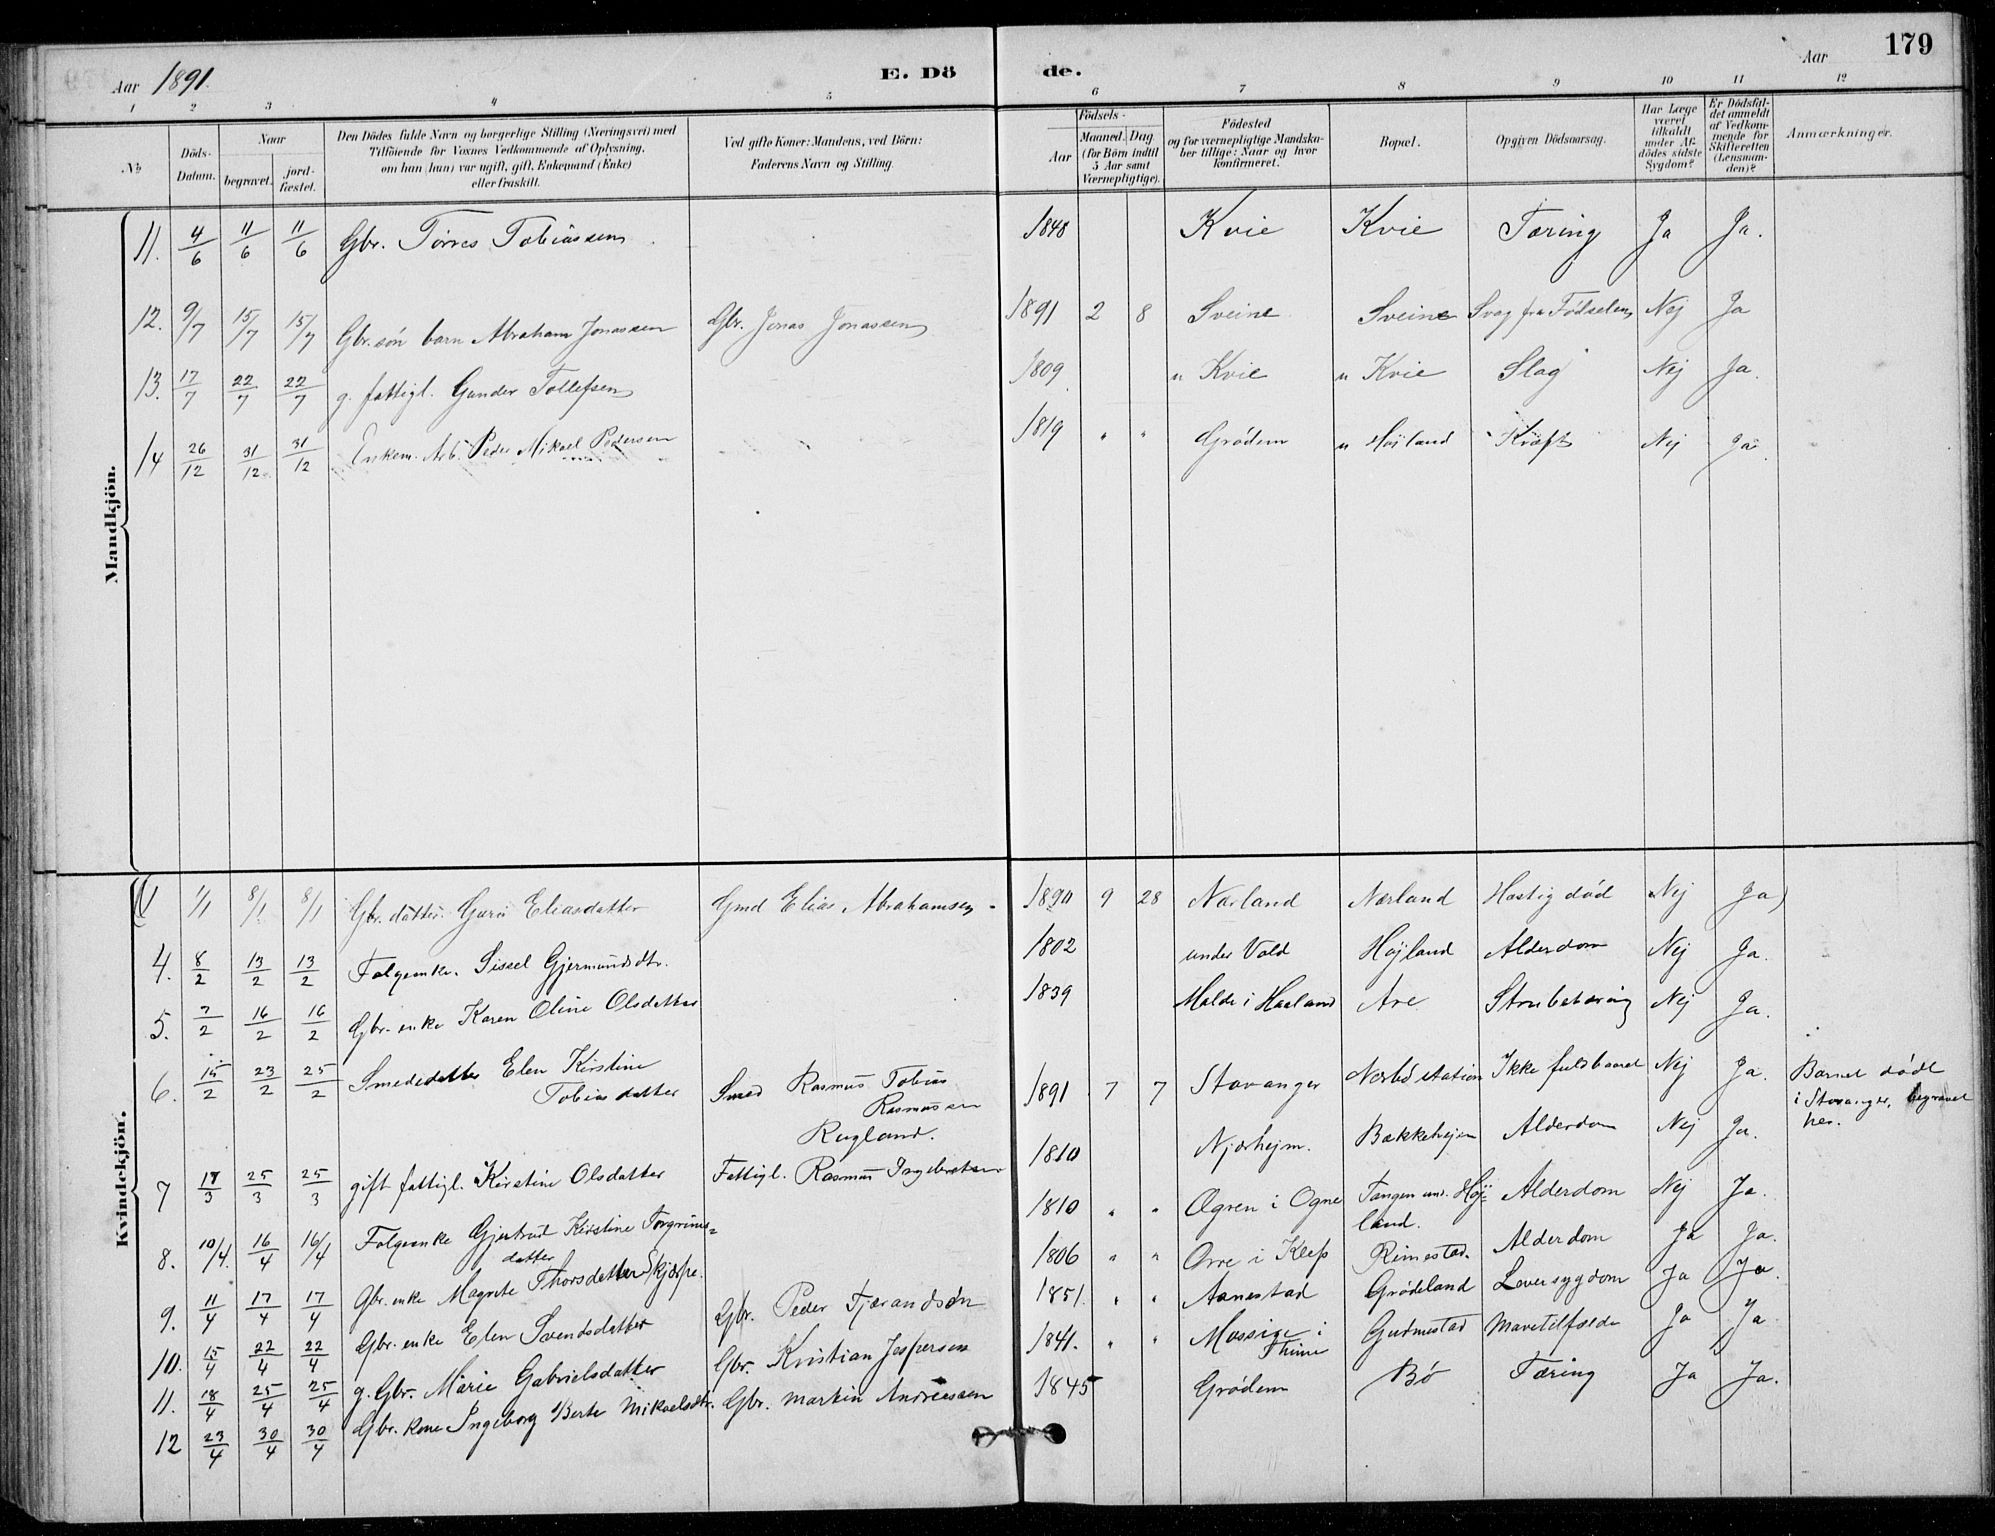 Aar 1891. E. Dö de. Aar 179
1 2 3 4 5 6 7 8 9 10 11 12
No Döds-Datum. Naar begravet. jord-fæstet. Den Dödes fulde Navn og borgerlige Stilling (Næringsvei) med Tilföiende for Voxnes Vedkommende af Oplysning, om han (hun) var ugift, gift, Enkemand (Enke) eller fraskilt. Ved gifte Koner: Mandens, ved Börn: Faderens Navn og Stilling. Födsels- Aar Maaned. Dag (for Börn indtil 5 Aar samt Værnepligtige). Födested og for værnepligtige Mandskaber tillige: Naar og hvor konfirmeret. Bopæl. Opgiven Dödsaarsag. Har Læge været tilkaldt under Afdödes sidste Sygdom? Er Dödsfaldet anmeldt af Vedkommende for Skifteretten (Lensmanden)? Anmærkninger.
Mandkjön.
11. 4/6 11/6 11/6 Gbr. Törres Tobiassen 1848 Kvie Kvie Tæring Ja Ja.
12. 9/7 15/7 15/7 Gbr. sön barn Abraham Jonassen Gbr. Jonas Jonassen 1891 2 8 Sveine Sveine Svag fra Fødselen Nej Ja
13. 17/7 22/7 22/7 g. fattigl. Gunder Tollefsen 1809 u Kvie u Kvie Slag Nej Ja.
14 26/12 31/12 31/12 Enkem. Arb. Peder Mikael Pedersen 1819 " " Grødem u Højland Kræft Nej Ja.
Kvindekjön.
1/1 8/1 8/1 Gbr. datter. Guro Eliasdatter Gmd Elias Abrahamsen 1890 9 28 Nærland Nærland Hastig død Nej Ja)
4. 8/2 13/2 13/2 Folgeenke. Sissel Gjermundsdtr. 1802 under Vold Højland Alderdom Nej Ja.
5. 7/2 16/2 16/2 Gbr. enke Karen Oline Olsdatter 1839 Malde i Haaland Are Strubetæring Nej Ja.
6. 15/2 23/2 25/2 Smededatter Elen Kirstine Tobiasdatter Smed Rasmus Tobias Rasmussen Rugland. 1891 7 7 Stavanger Nærbø station Ikke fuldbaaret Nej Ja. Barnet døde i Stavanger, begravet her.
7 18/3 25/3 25/3 gift fattigl. Kirstine Olsdatter Fattigl. Rasmus Ingebretsen 1810 Njærhejm. Bækkehejen Alderdom Nej Ja.
8. 10/4. 16/4 16/4 Folgeenke Gjertrud Kirstine Torgrimsdatter 1810 " " Ogren i Ogne Tangen und. Højland. Alderdom Nej Ja.
9. 11/4 17/4 17/4 Gbr. enke Magrete Thorsdatter Skjærpe. 1806 " " Orre i Klep Rimestad. Alderdom Ja Ja.
10. 15/4 22/4 22/4 Gbr. enke Elen Svendsdatter Gbr. Peder Tjerandsøn 1851. " " Aanestad Grødeland Leversygdom Ja Ja.
11. 18/4 25/4 25/4 g. Gbr. Marie Gabrielsdatter Gbr. Kristian Jespersen 1841. " " Mossige i Thime Gudmestad Mavetilfælde Ja Ja.
12 23/4 30/4 30/4 Gbr. kone Ingeborg Berte Mikaelsdtr. Gbr. Martin Andreassen 1845 Grødem Bø Tæring Ja Ja.